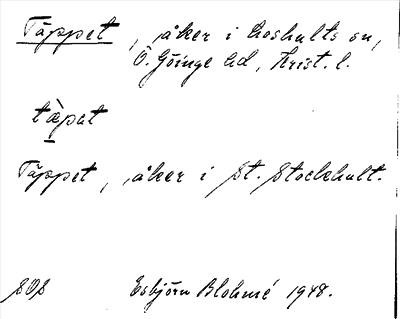 Täppet, åker i Loshults sn,
Ö. Göinge hd, Krist. l.
tæ̀pat
Täppet, åker i St. Stockhult.
SOS Esbjörn Blohmé 1948.